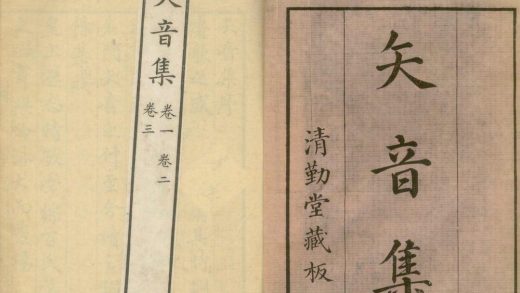 矢音集
卷一 卷二
卷三
矢音集
清勤堂藏板